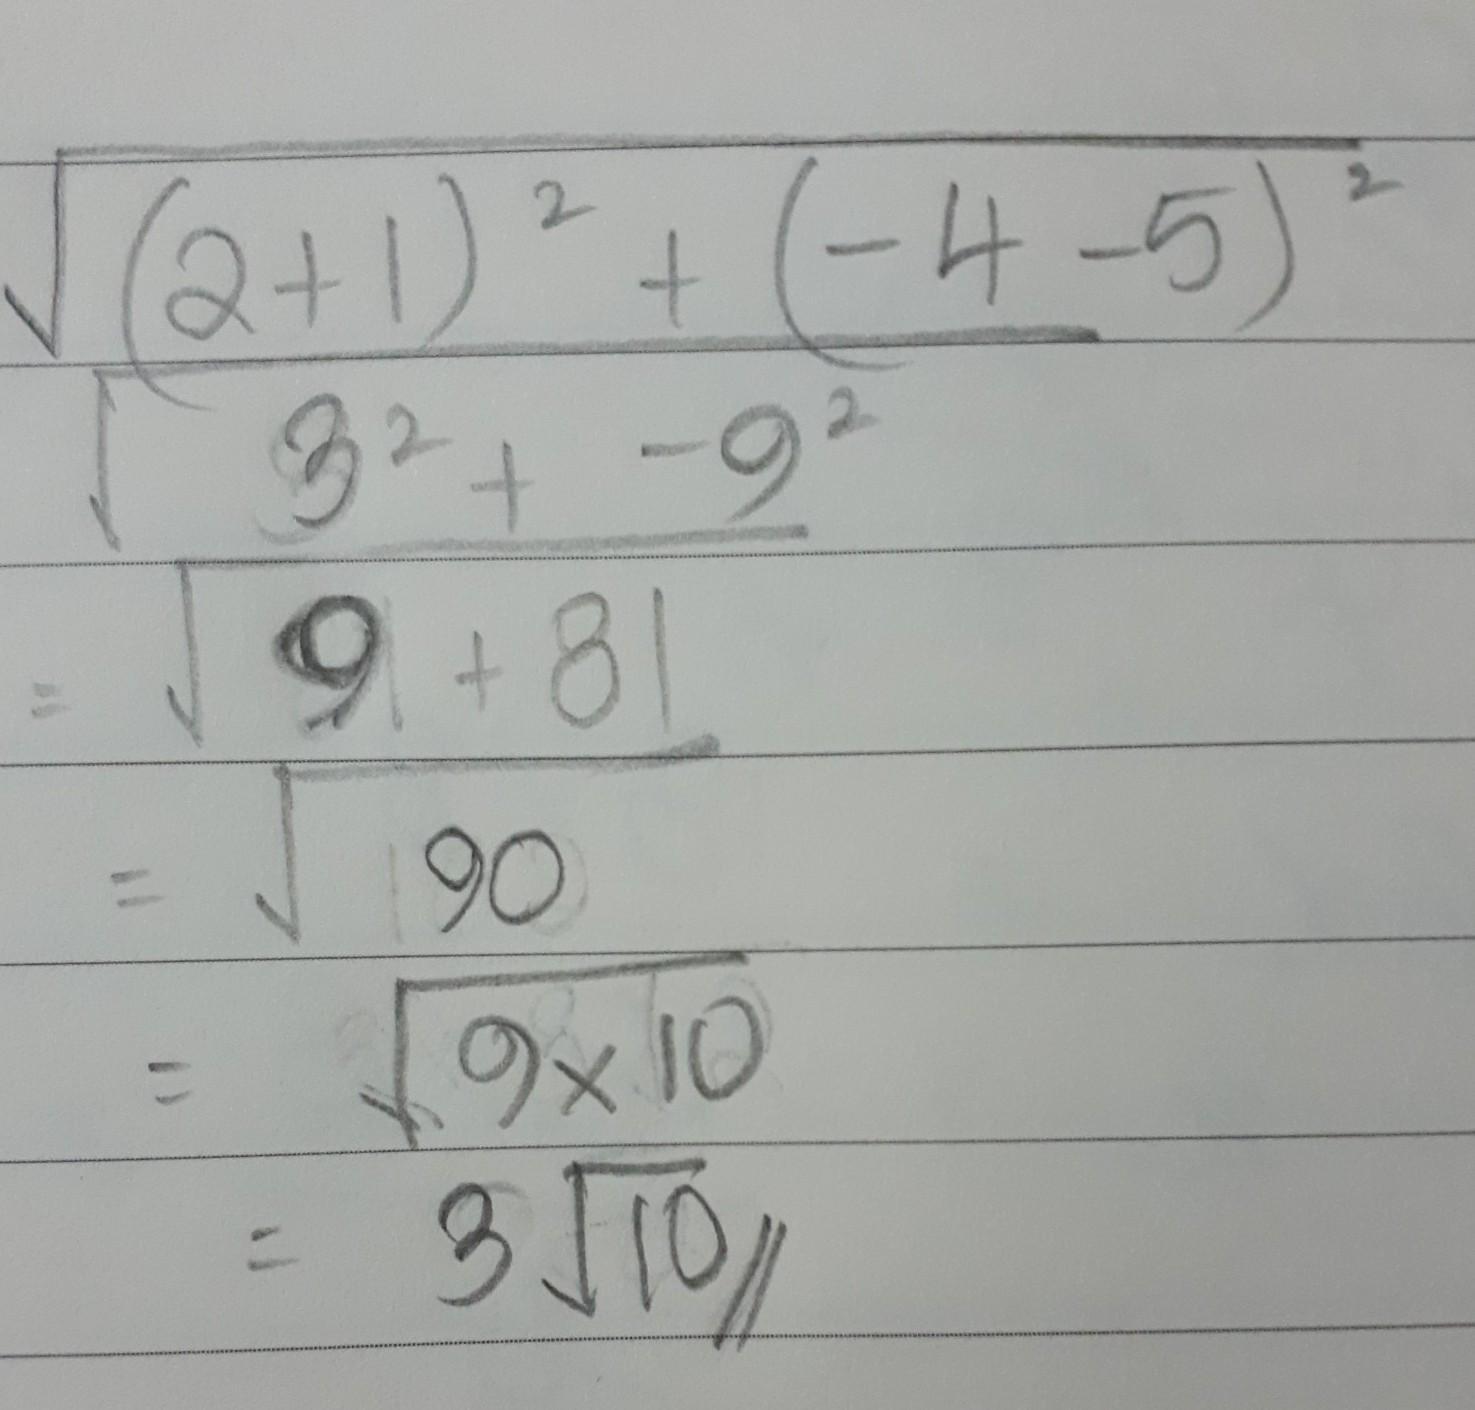 √(2+1)² + (-4-5)²
√3² + -9²
= √9 + 81
= √90
= √9×10
= 3√10 //